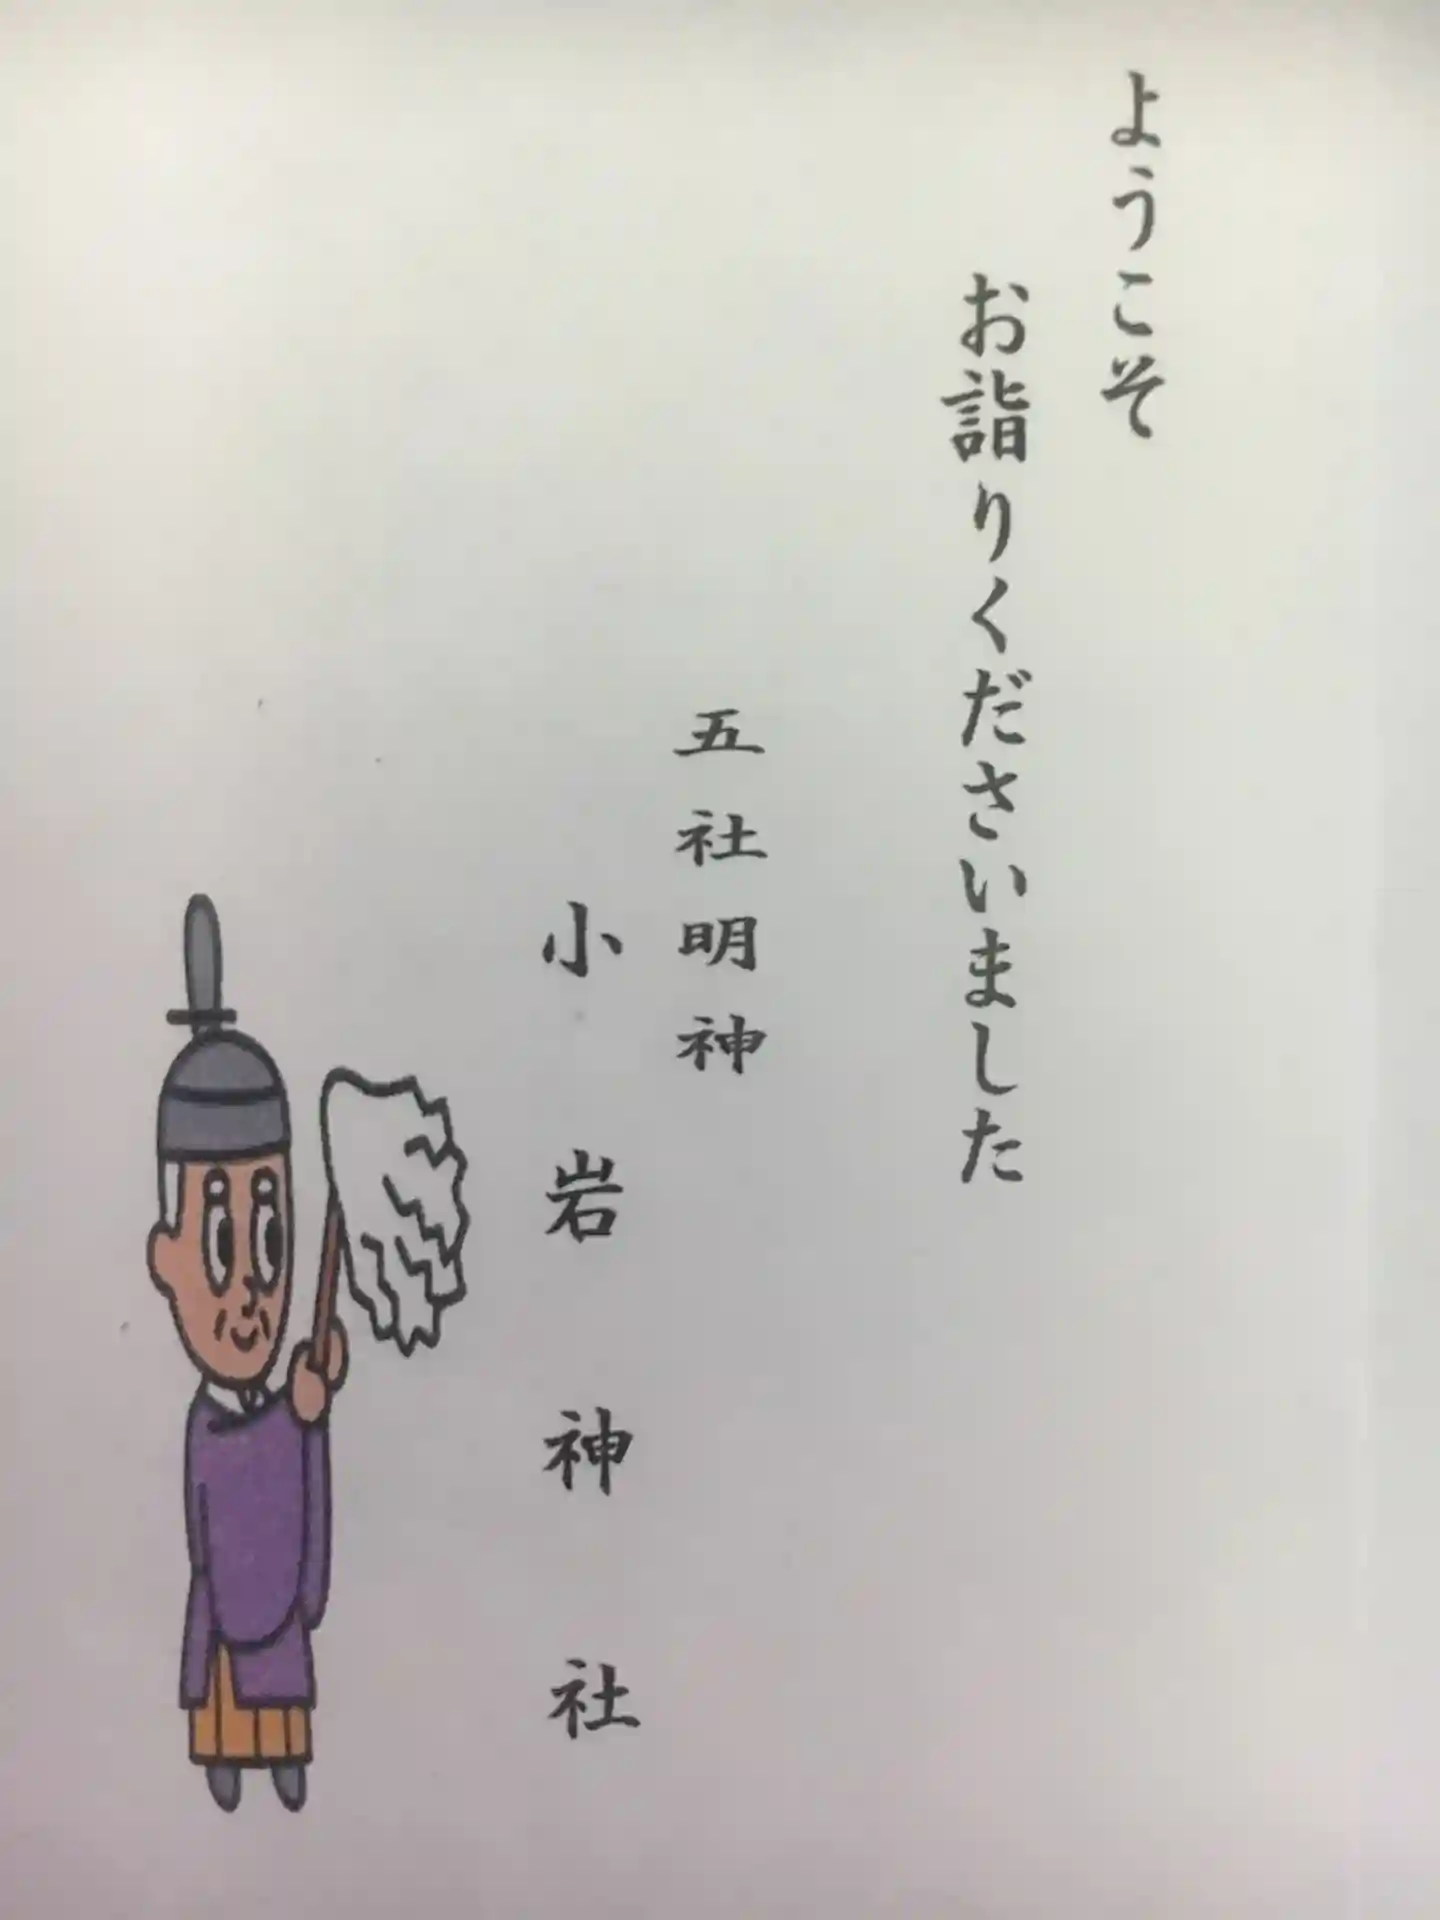 ようこそ
お詣りくださいました
五社明神
小岩神社